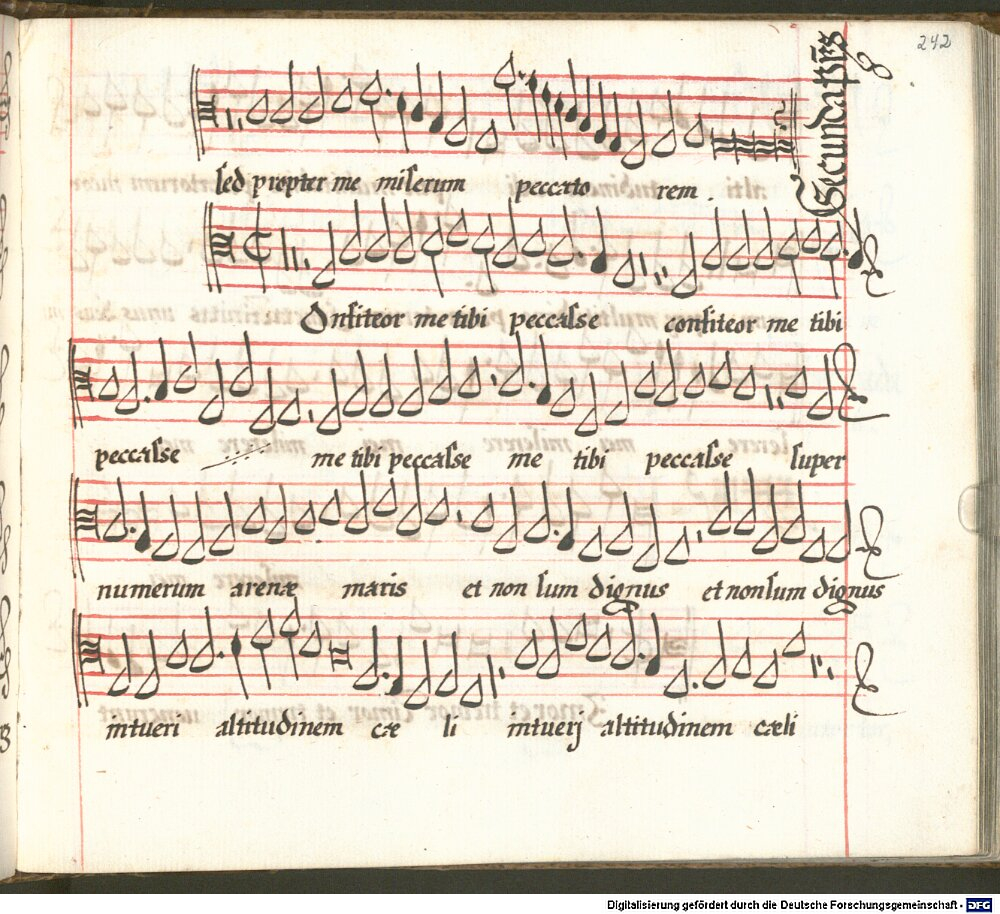 242
Secunda pars
8
sed propter me miserum peccato rem .
Onfiteor me tibi peccasse confiteor me tibi
peccasse me tibi peccasse me tibi peccasse super
numerum arenæ maris et non sum dignus et non sum dignus
intueri altitudinem cæ li intuerj altitudinem cæli
Digitalisierung gefördert durch die Deutsche Forschungsgemeinschaft - DFG